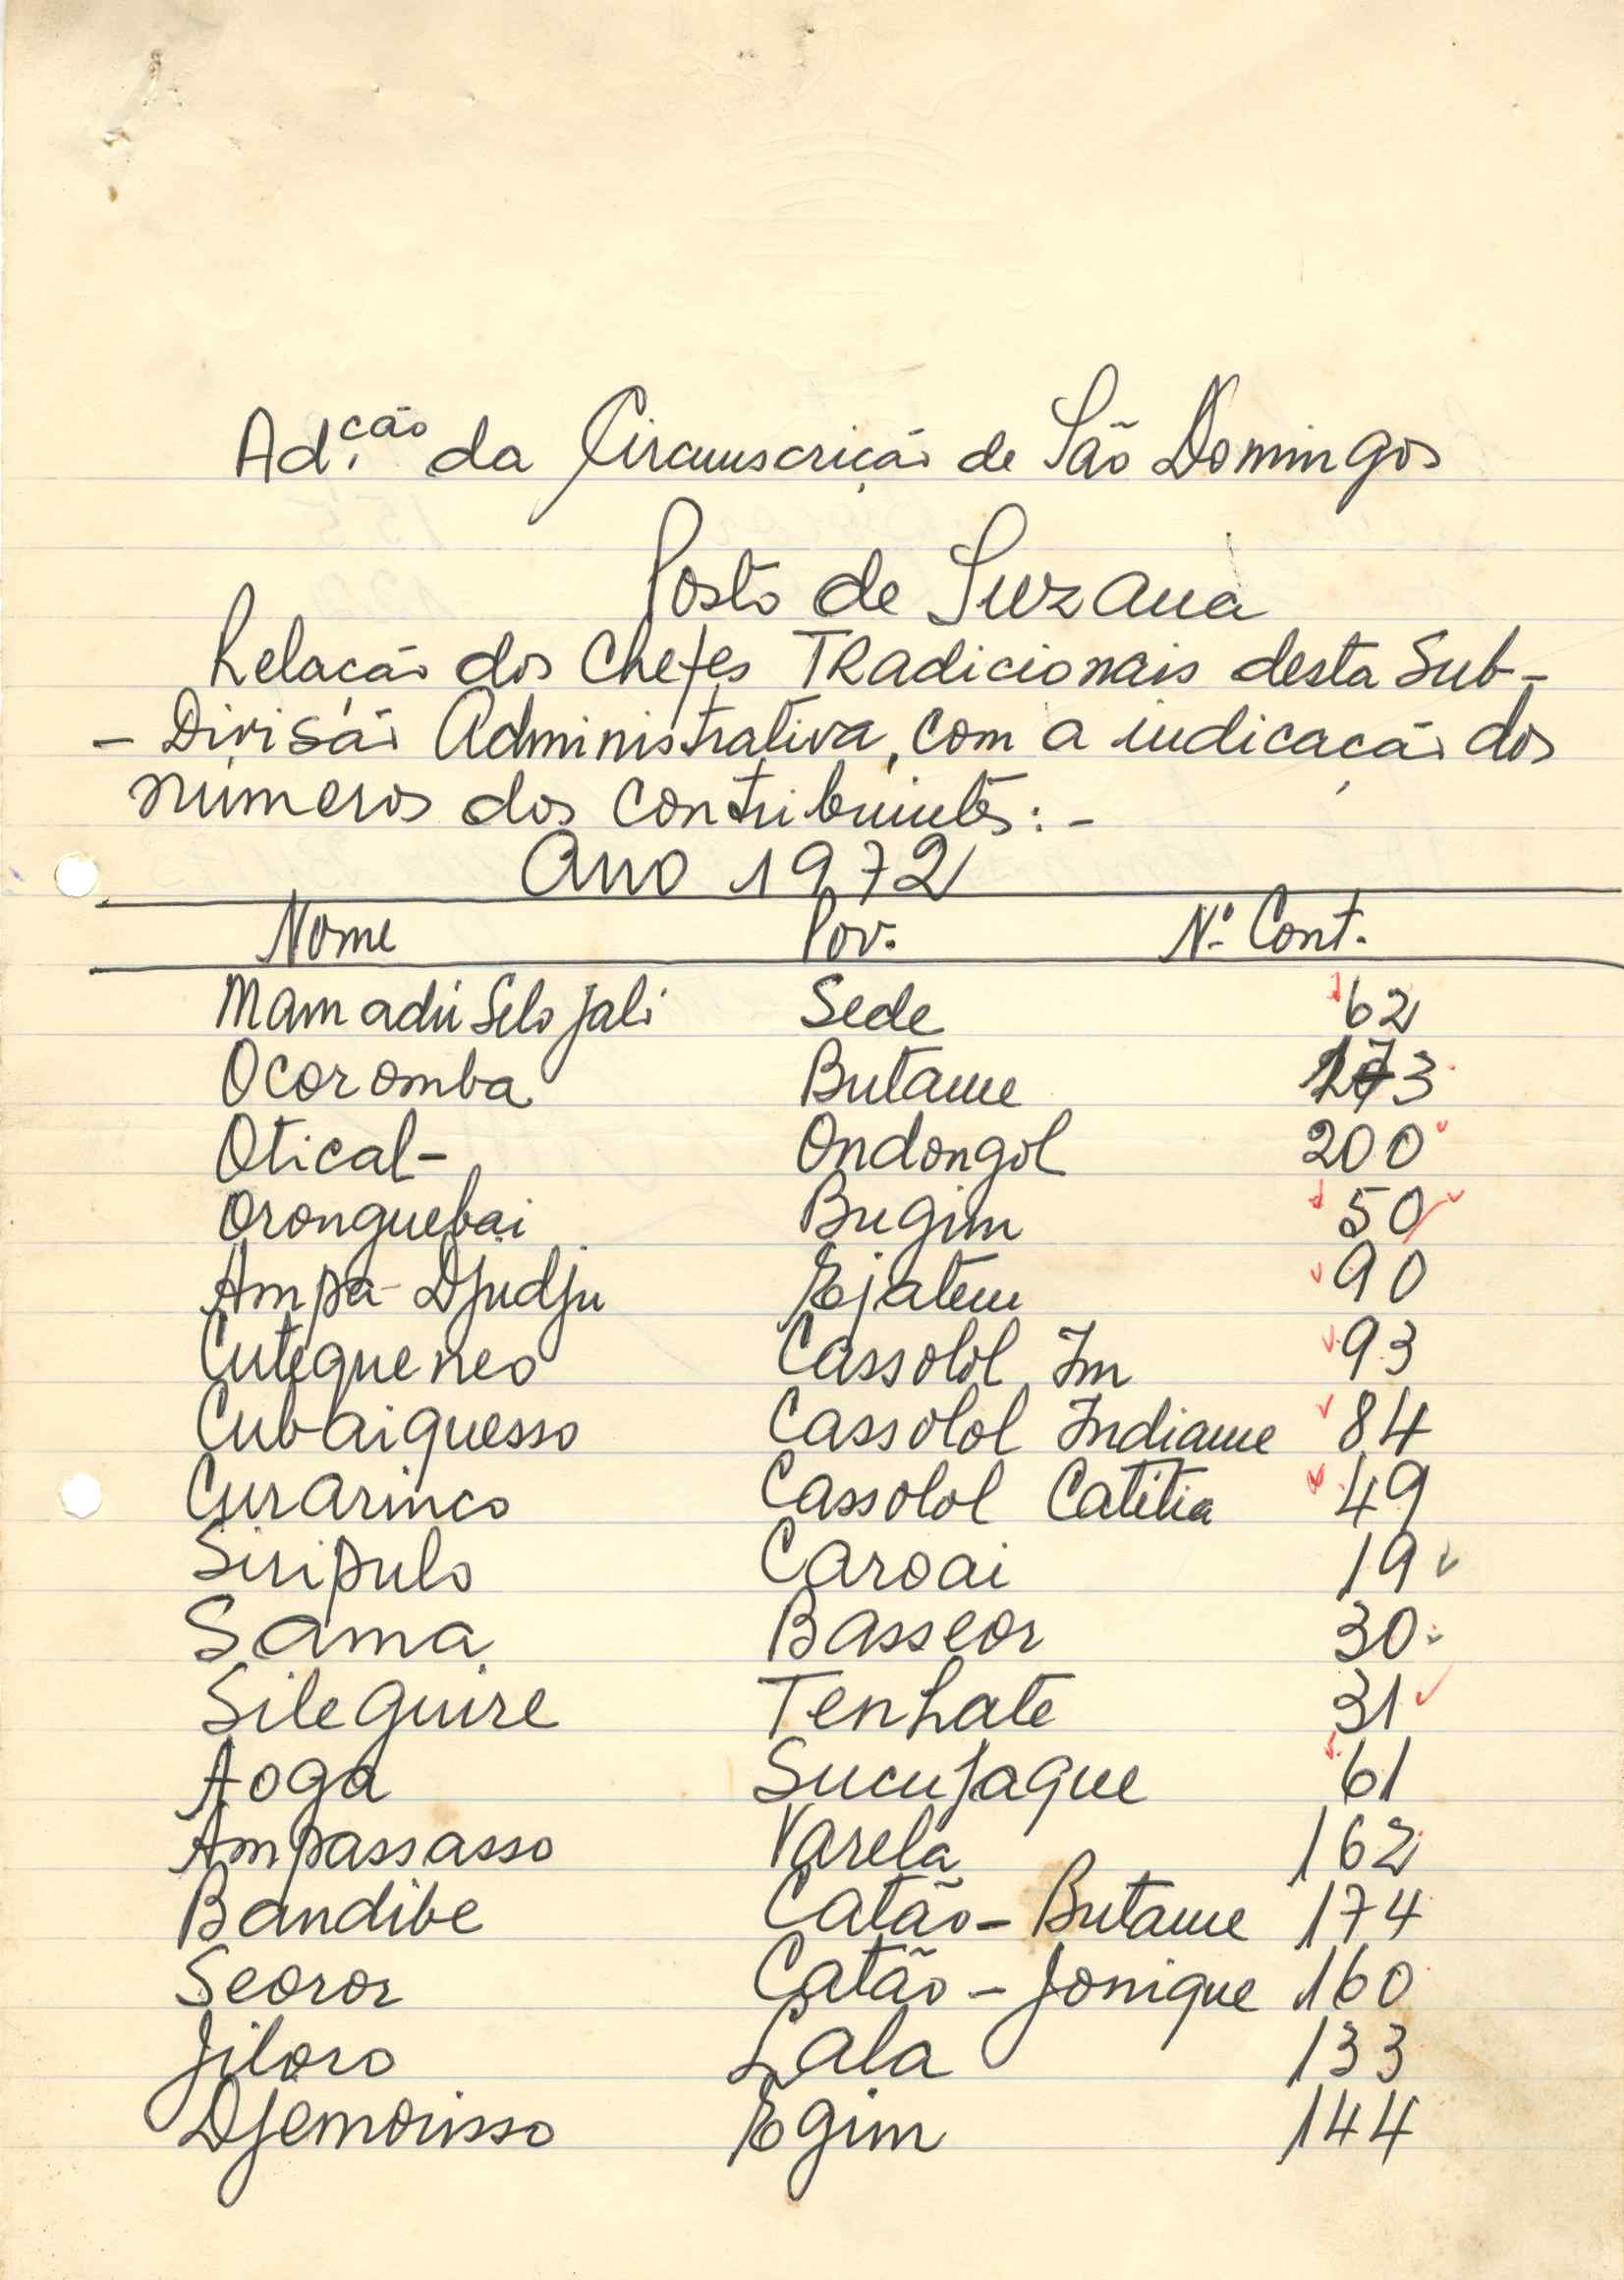 Ad.ção da Circunscrição de São Domingos
Posto de Suzana
Relação dos Chefes Tradicionais desta Sub-
- Divisão Administrativa, com a indicação dos
números dos contribuintes: -
Ano 1972
Nome Pov. Nº Cont.
Mamadú Selo Jali Sede 62
Ocoromba Butame 173
Otical- Ondongol 200
Oronguebai Bugim 50
Ampa-Djudju Ejatem 90
Cutequeneo Cassolol Im 93
Cubaiquesso Cassolol Indiame 84
Curarinco Cassolol Catitia 49
Siripulo Caroai 19
Sama Basseor 30
Sileguire Tenhate 31
Aoga Sucujaque 61
Ampassasso Varela 162
Bandibe Catão - Butame 174
Seoror Catão - Jonique 160
Jiloro Lala 133
Djemorisso Egim 144